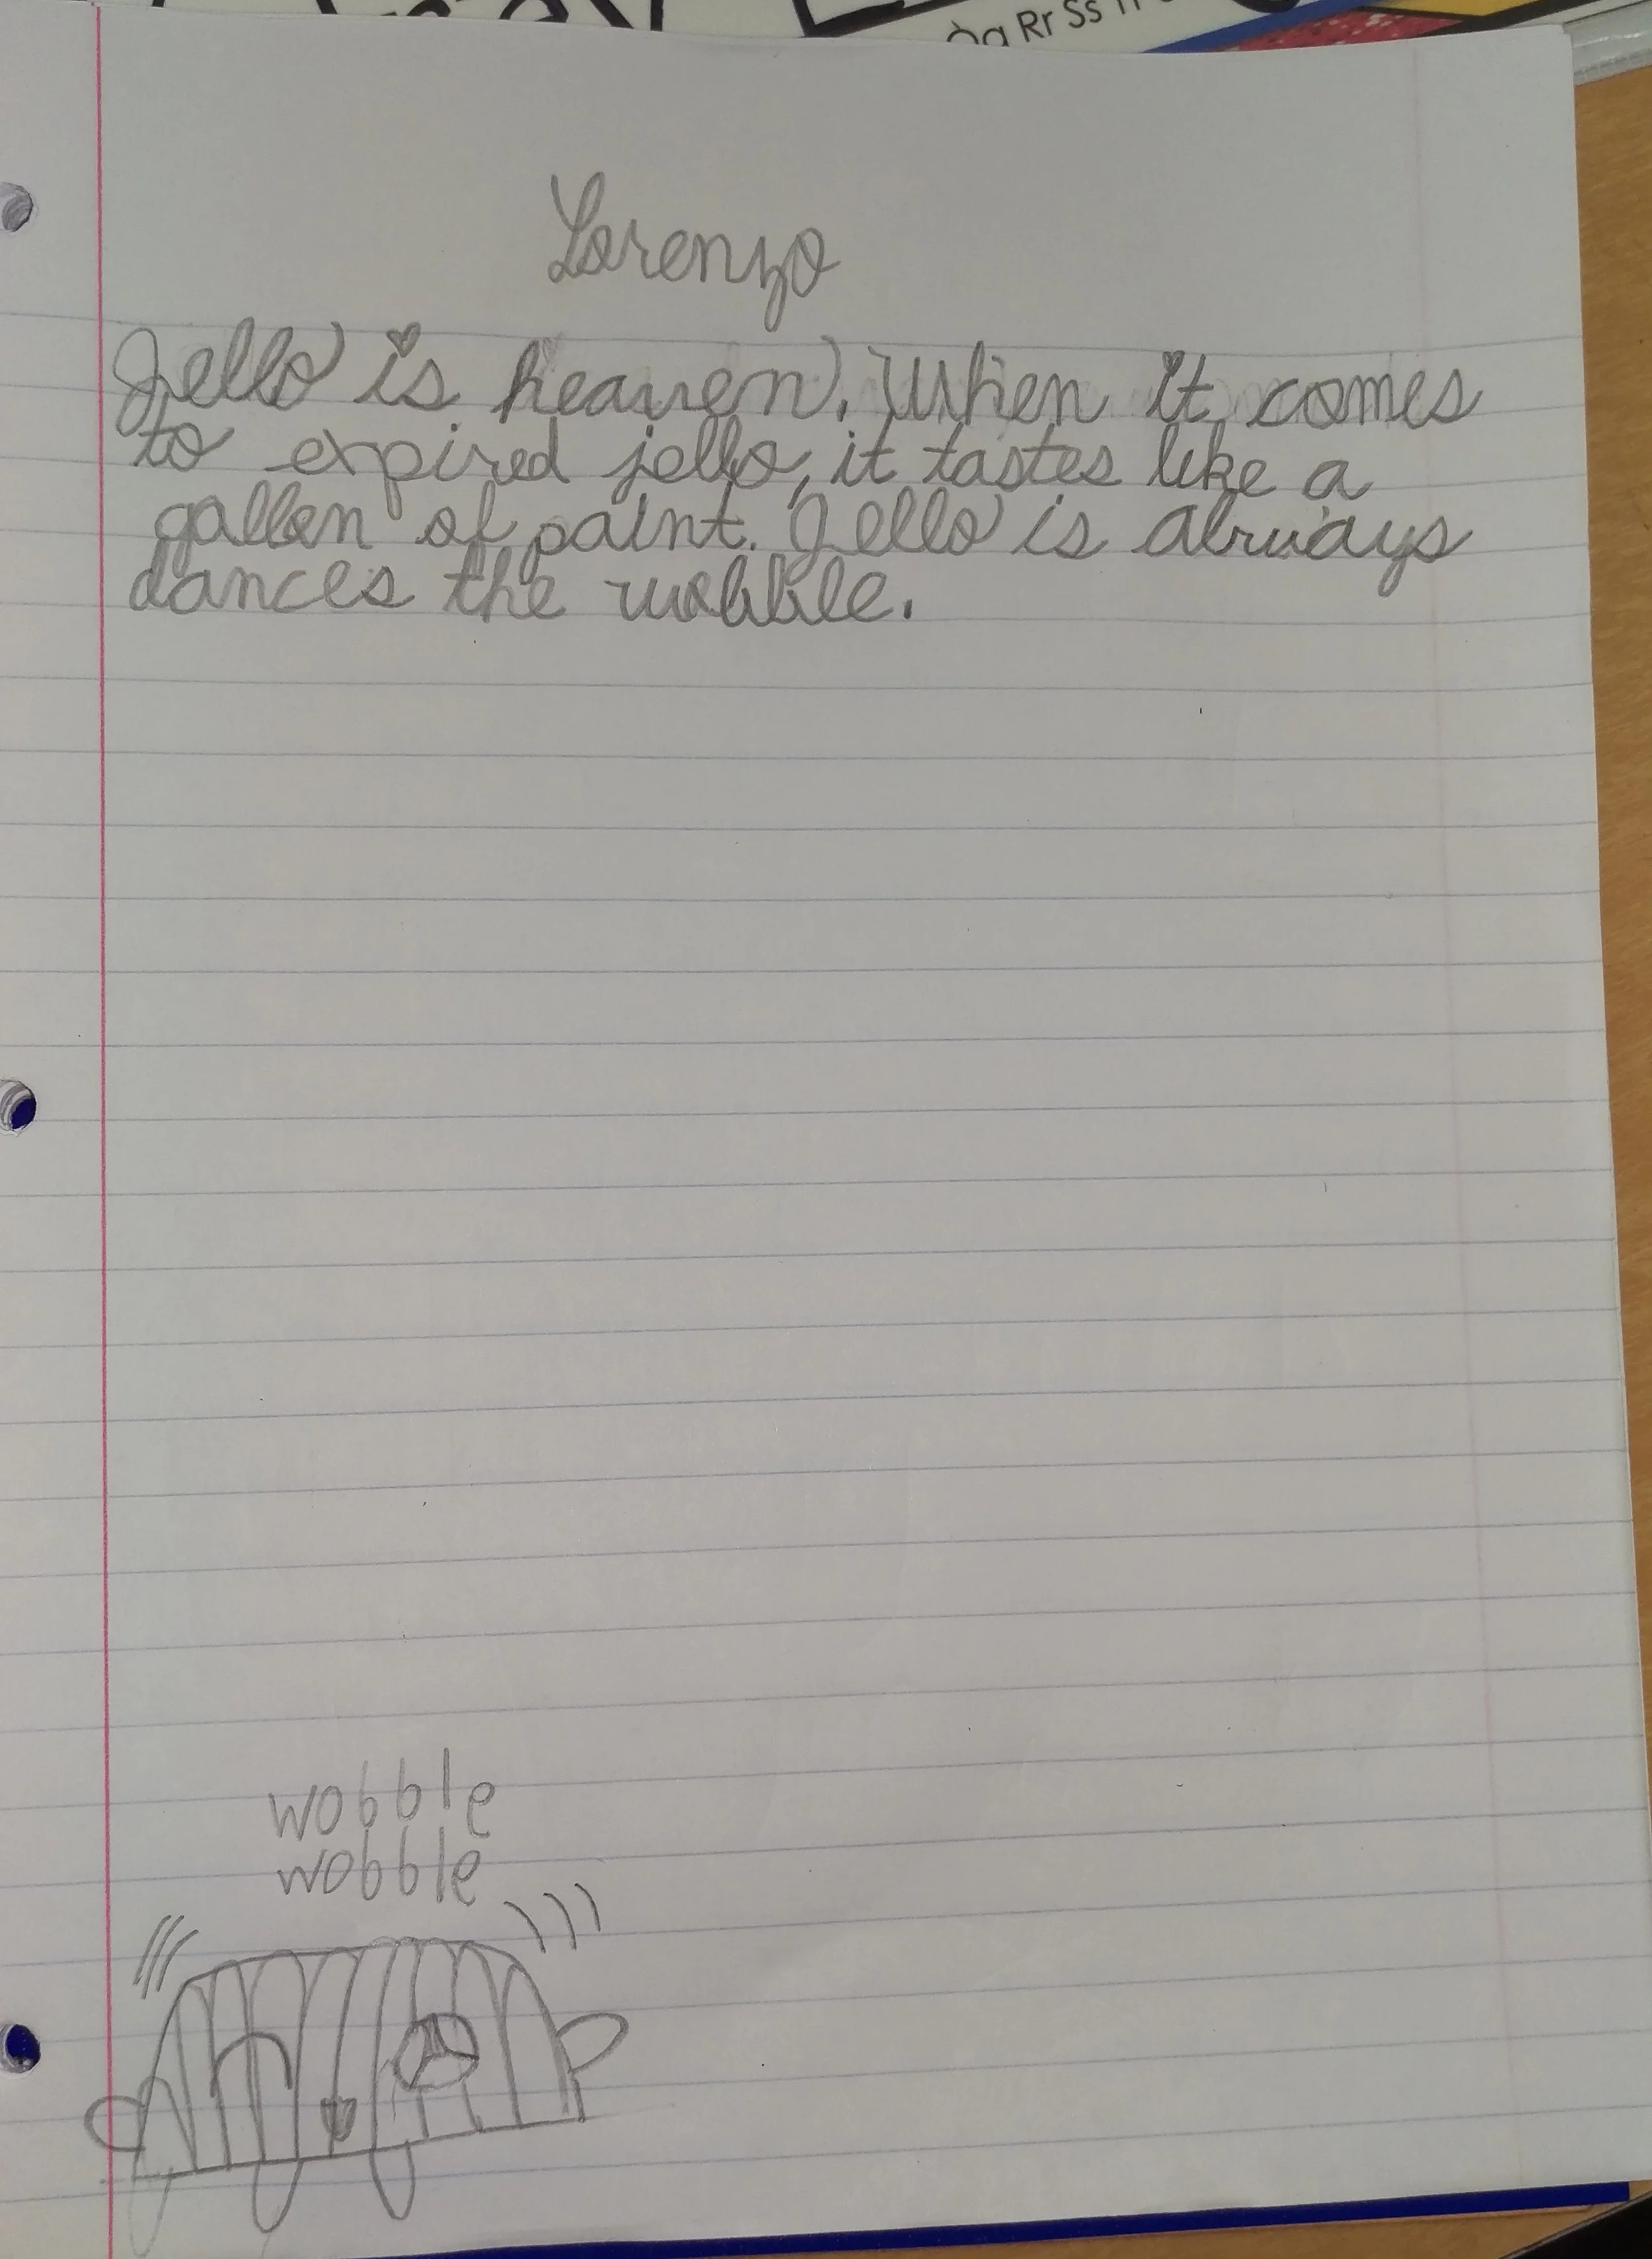 Qq Rr Ss
Lorenzo
Jello is heaven. When it comes
to expired jello, it tastes like a
gallon of paint. Jello is always
dances the wobble.
wobble
wobble